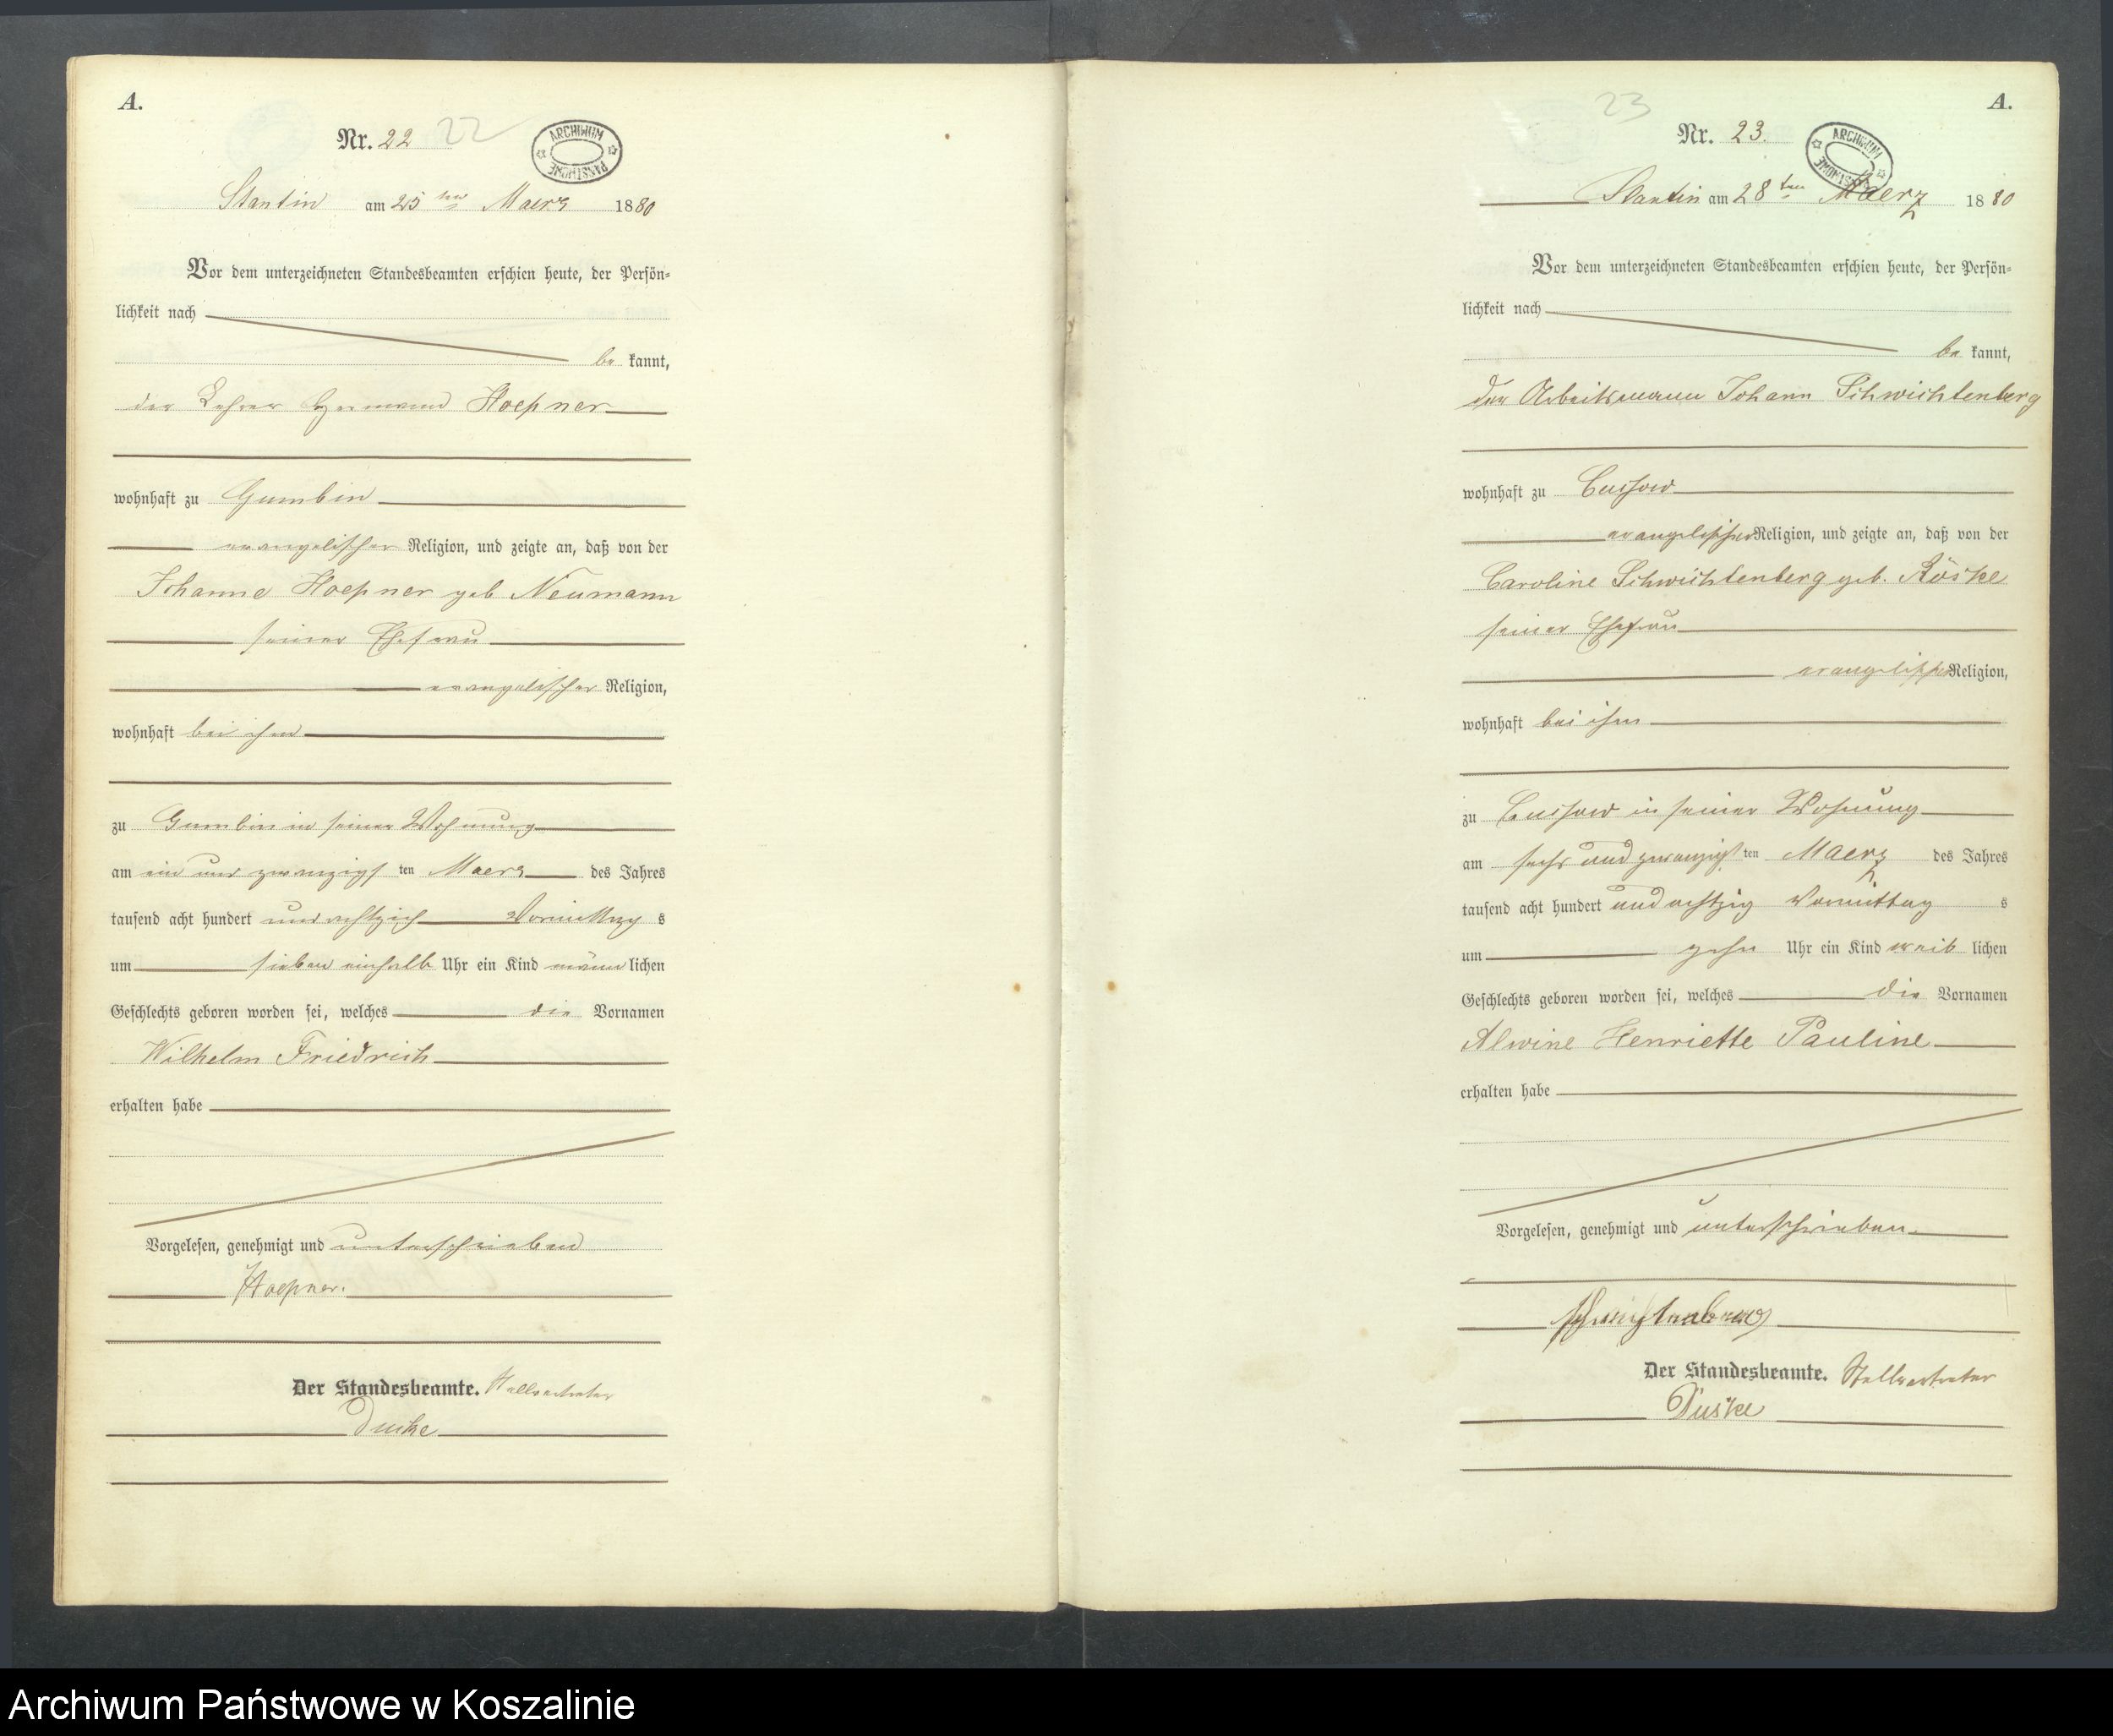 A.
Nr. 22 22
ARCHIWUM PAŃSTWOWE
Stantin am 25 ten Maerz 1880
Vor dem unterzeichneten Standesbeamten erschien heute, der Persön-
lichkeit nach
be kannt,
der Lehrer Hermann Hoepner
wohnhaft zu Gumbin
evangelischer Religion, und zeigte an, daß von der
Johanne Hoepner geb Neumann
seiner Ehefrau
evangelischer Religion,
wohnhaft bei ihm
zu Gumbin in seiner Wohnung
am ein und zwanzigs ten Maerz des Jahres
tausend acht hundert und achtzig Vormittag s
um sieben einhalb Uhr ein Kind männ lichen
Geschlechts geboren worden sei, welches die Vornamen
Wilhelm Friedrich
erhalten habe
Vorgelesen, genehmigt und unterschrieben
Hoepner.
Der Standesbeamte. Stellvertreter
A.
23
Nr. 23.
ARCHIWUM PAŃSTWOWE
Stantin am 28 ten Maerz 1880
Vor dem unterzeichneten Standesbeamten erschien heute, der Persön-
lichkeit nach
be kannt,
der Arbeitsmann Johann Schwichtenberg
wohnhaft zu Cussow
evangelischer Religion, und zeigte an, daß von der
Caroline Schwichtenberg geb. Röske
seiner Ehefrau
evangelischer Religion,
wohnhaft bei ihm
zu Cussow in seiner Wohnung
am sechs und zwanzigs ten Maerz des Jahres
tausend acht hundert und achtzig Vormittag s
um zehn Uhr ein Kind weib lichen
Geschlechts geboren worden sei, welches die Vornamen
Alwine Henriette Pauline
erhalten habe
Vorgelesen, genehmigt und unterschrieben
Schwichtenberg
Der Standesbeamte. Stellvertreter
Archiwum Państwowe w Koszalinie